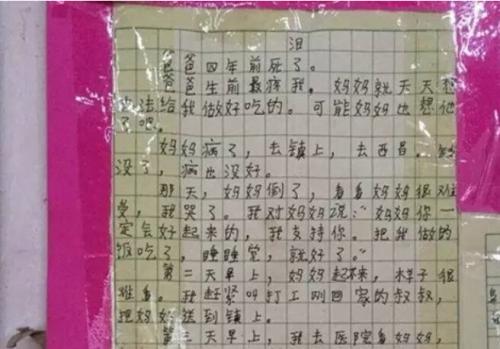 泪
爸爸四年前死了。
爸爸生前最疼我。妈妈就天天想
办法给我做好吃的。可能妈妈也想他
了吧。
妈妈病了，去镇上，去西昌。
没了，病也没好。
那天，妈妈倒了，看看妈妈很难
受，我哭了。我对妈妈说：“妈妈你一
定会好起来的，我支持你。把我做的
饭吃了，睡睡觉，就好了。”
第二天早上，妈妈起不来，样子很
难看。我赶紧叫打工刚回家的叔叔，
把妈妈送到镇上。
第三天早上，我去医院看妈妈，